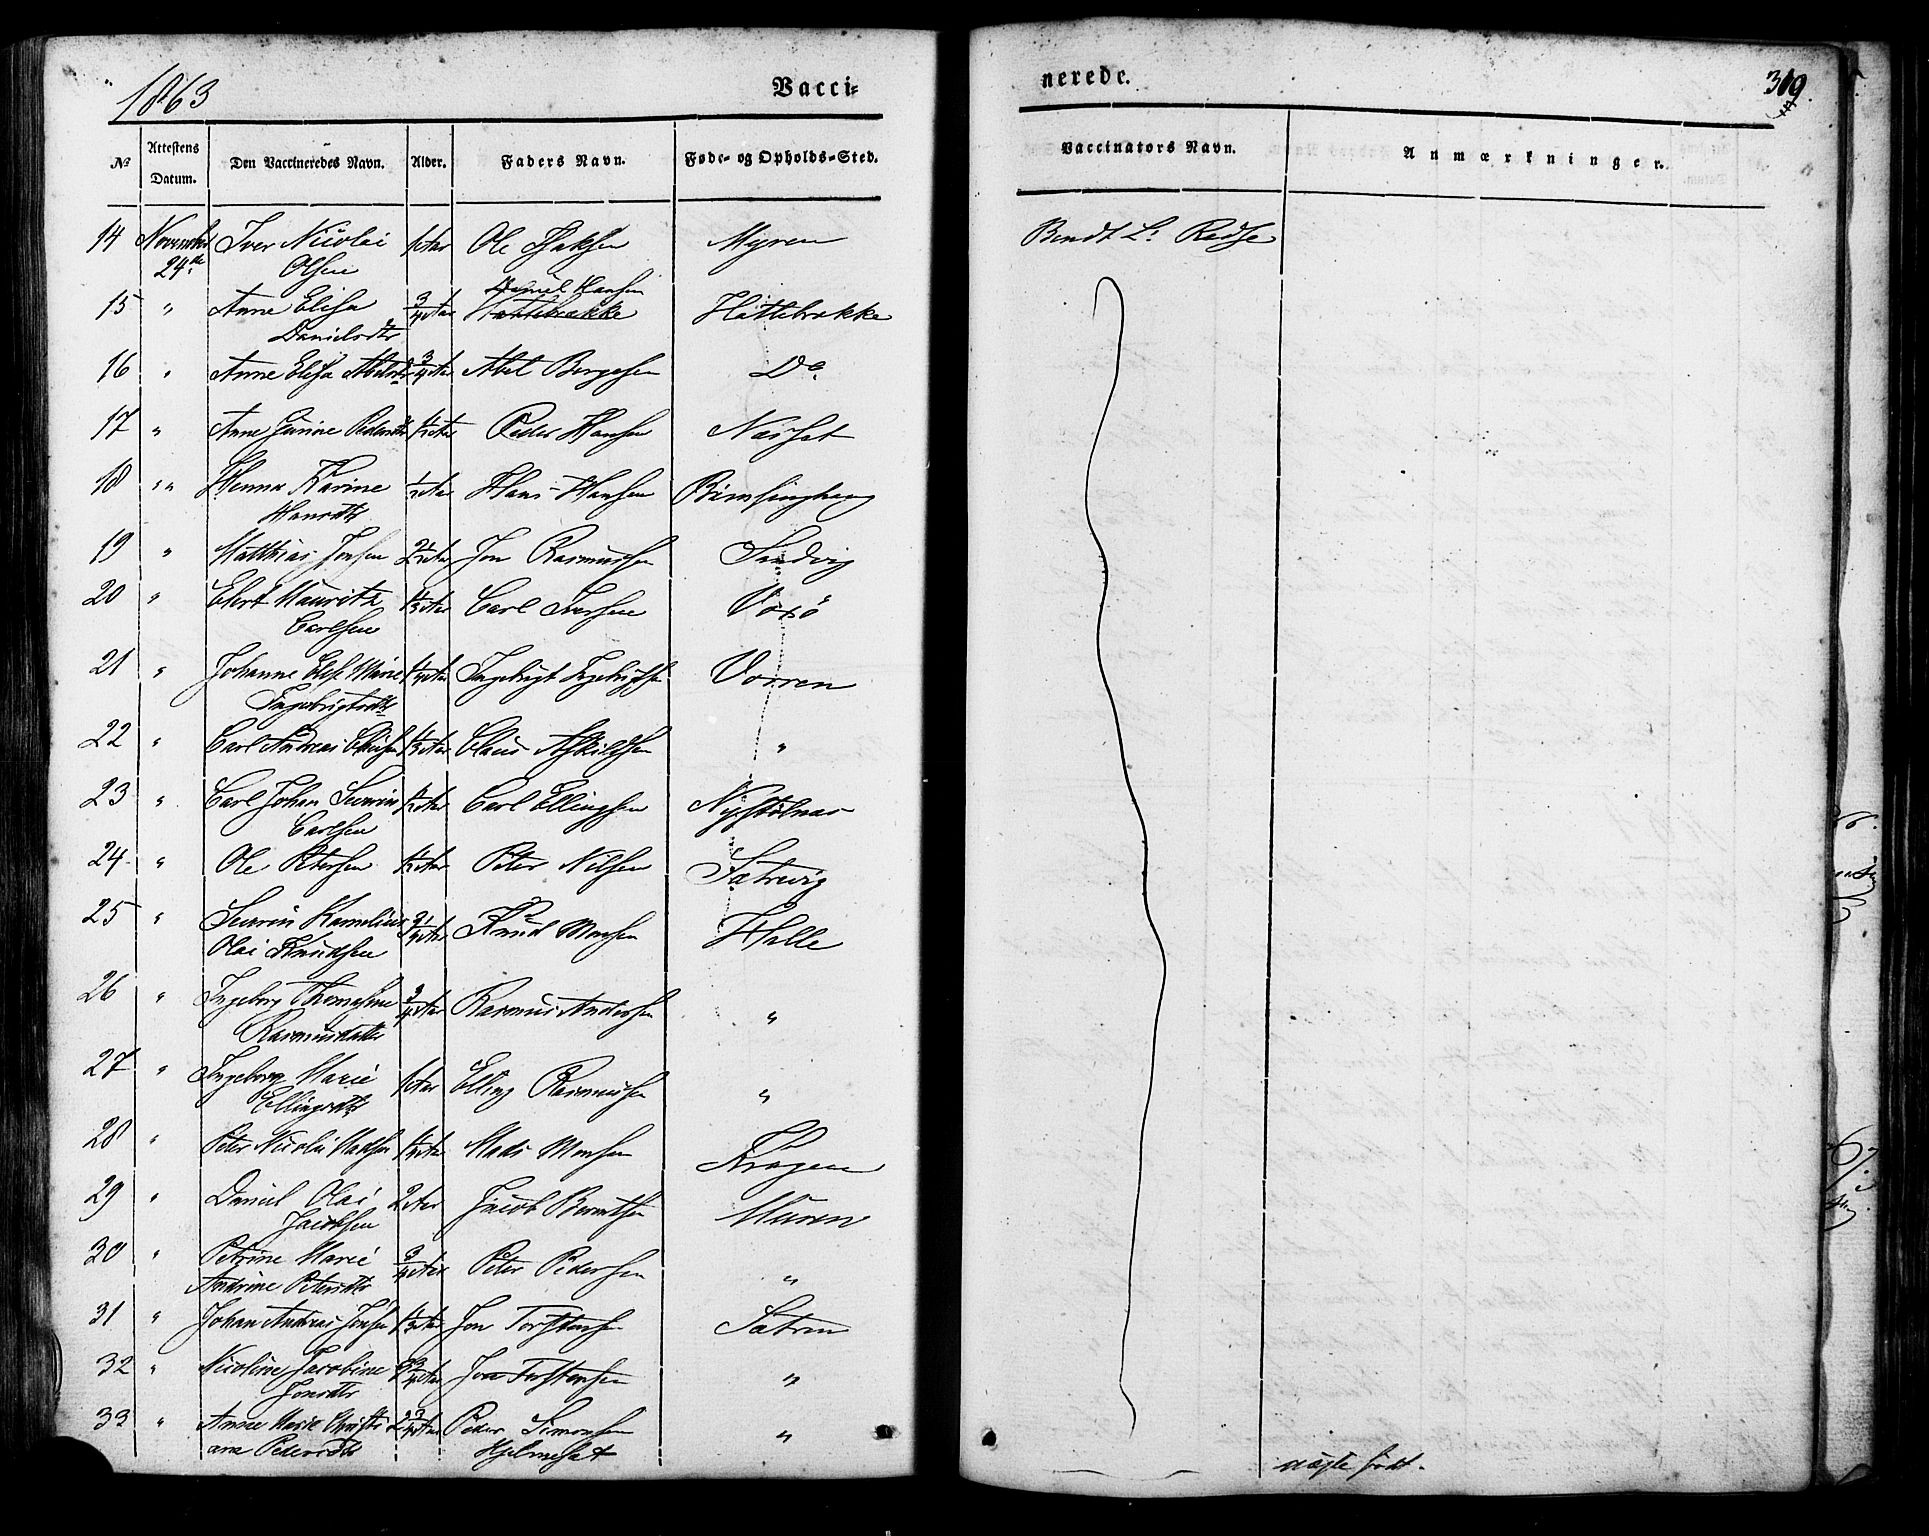 1863
Vacci-
nerede.
309
№ Attestens Datum. Den Vaccineredes Navn. Alder. Faders Navn. Føde- og Opholds-Sted. Vaccinators Navn. Anmærkninger.
14 November 24de Iver Nicolai Olsen Ole Isaksen Myren Bendt L:
15 " Anne Elisa Danielsdtr 3/4 Aar Daniel Hansen Hättebrække Hättebrække
16 " Anne Elisa Abelsd 3/4 Aar Abel Børgesen Do
17 " Anne Gurine Pedersdtr Peder Hansen Næsset
18 " " Henna Karine Hansdtr 1/2 Aar Hans Hansen
19 " Matthias Jonsen 2 1/2 Aar Jon Rasmussen Sandvig
20 " Elert Mauritz Carlsen Carl Iversen
21 " Johanne Elise Marie Ingebrigtsdtr Ingebrigt Ingebrigtsen Vorren
22 " Carl Andreas Clausen Claus Askildsen "
23 " Carl Johan Severin Carlsen Carl Ellingsen Nystølnæs
24 " Ole Petersen Peter Nilsen Sætrevig
25 " Severin Kornelius Olai Knudsen Knud Monsen Halle
26 " Ingeborg Thomasine Rasmusdatter 3/4 Aar Rasmus Andersen "
27 " Ingeborg Marie Ellingsdtr Elling Rasmussen "
28 " Peter Nicolai Madsen Mads Monsen Krogen
29 " Daniel Olai Jacobsen 2 Aar Jacob Berentsen Muren
30 " Petrine Marie Andrine Petersdtr 3/4 Aar Peter Pedersen "
31 " Johan Andreas Jonsen Jon Torstensen Sætren
32 " Nicoline Jacobine Jonsdtr Jon Torstensen "
33 " Anne Marie Christi- ana Pedersdtr 2 3/4 Aar Peder Simonsen Hjelmeset " uægte født.